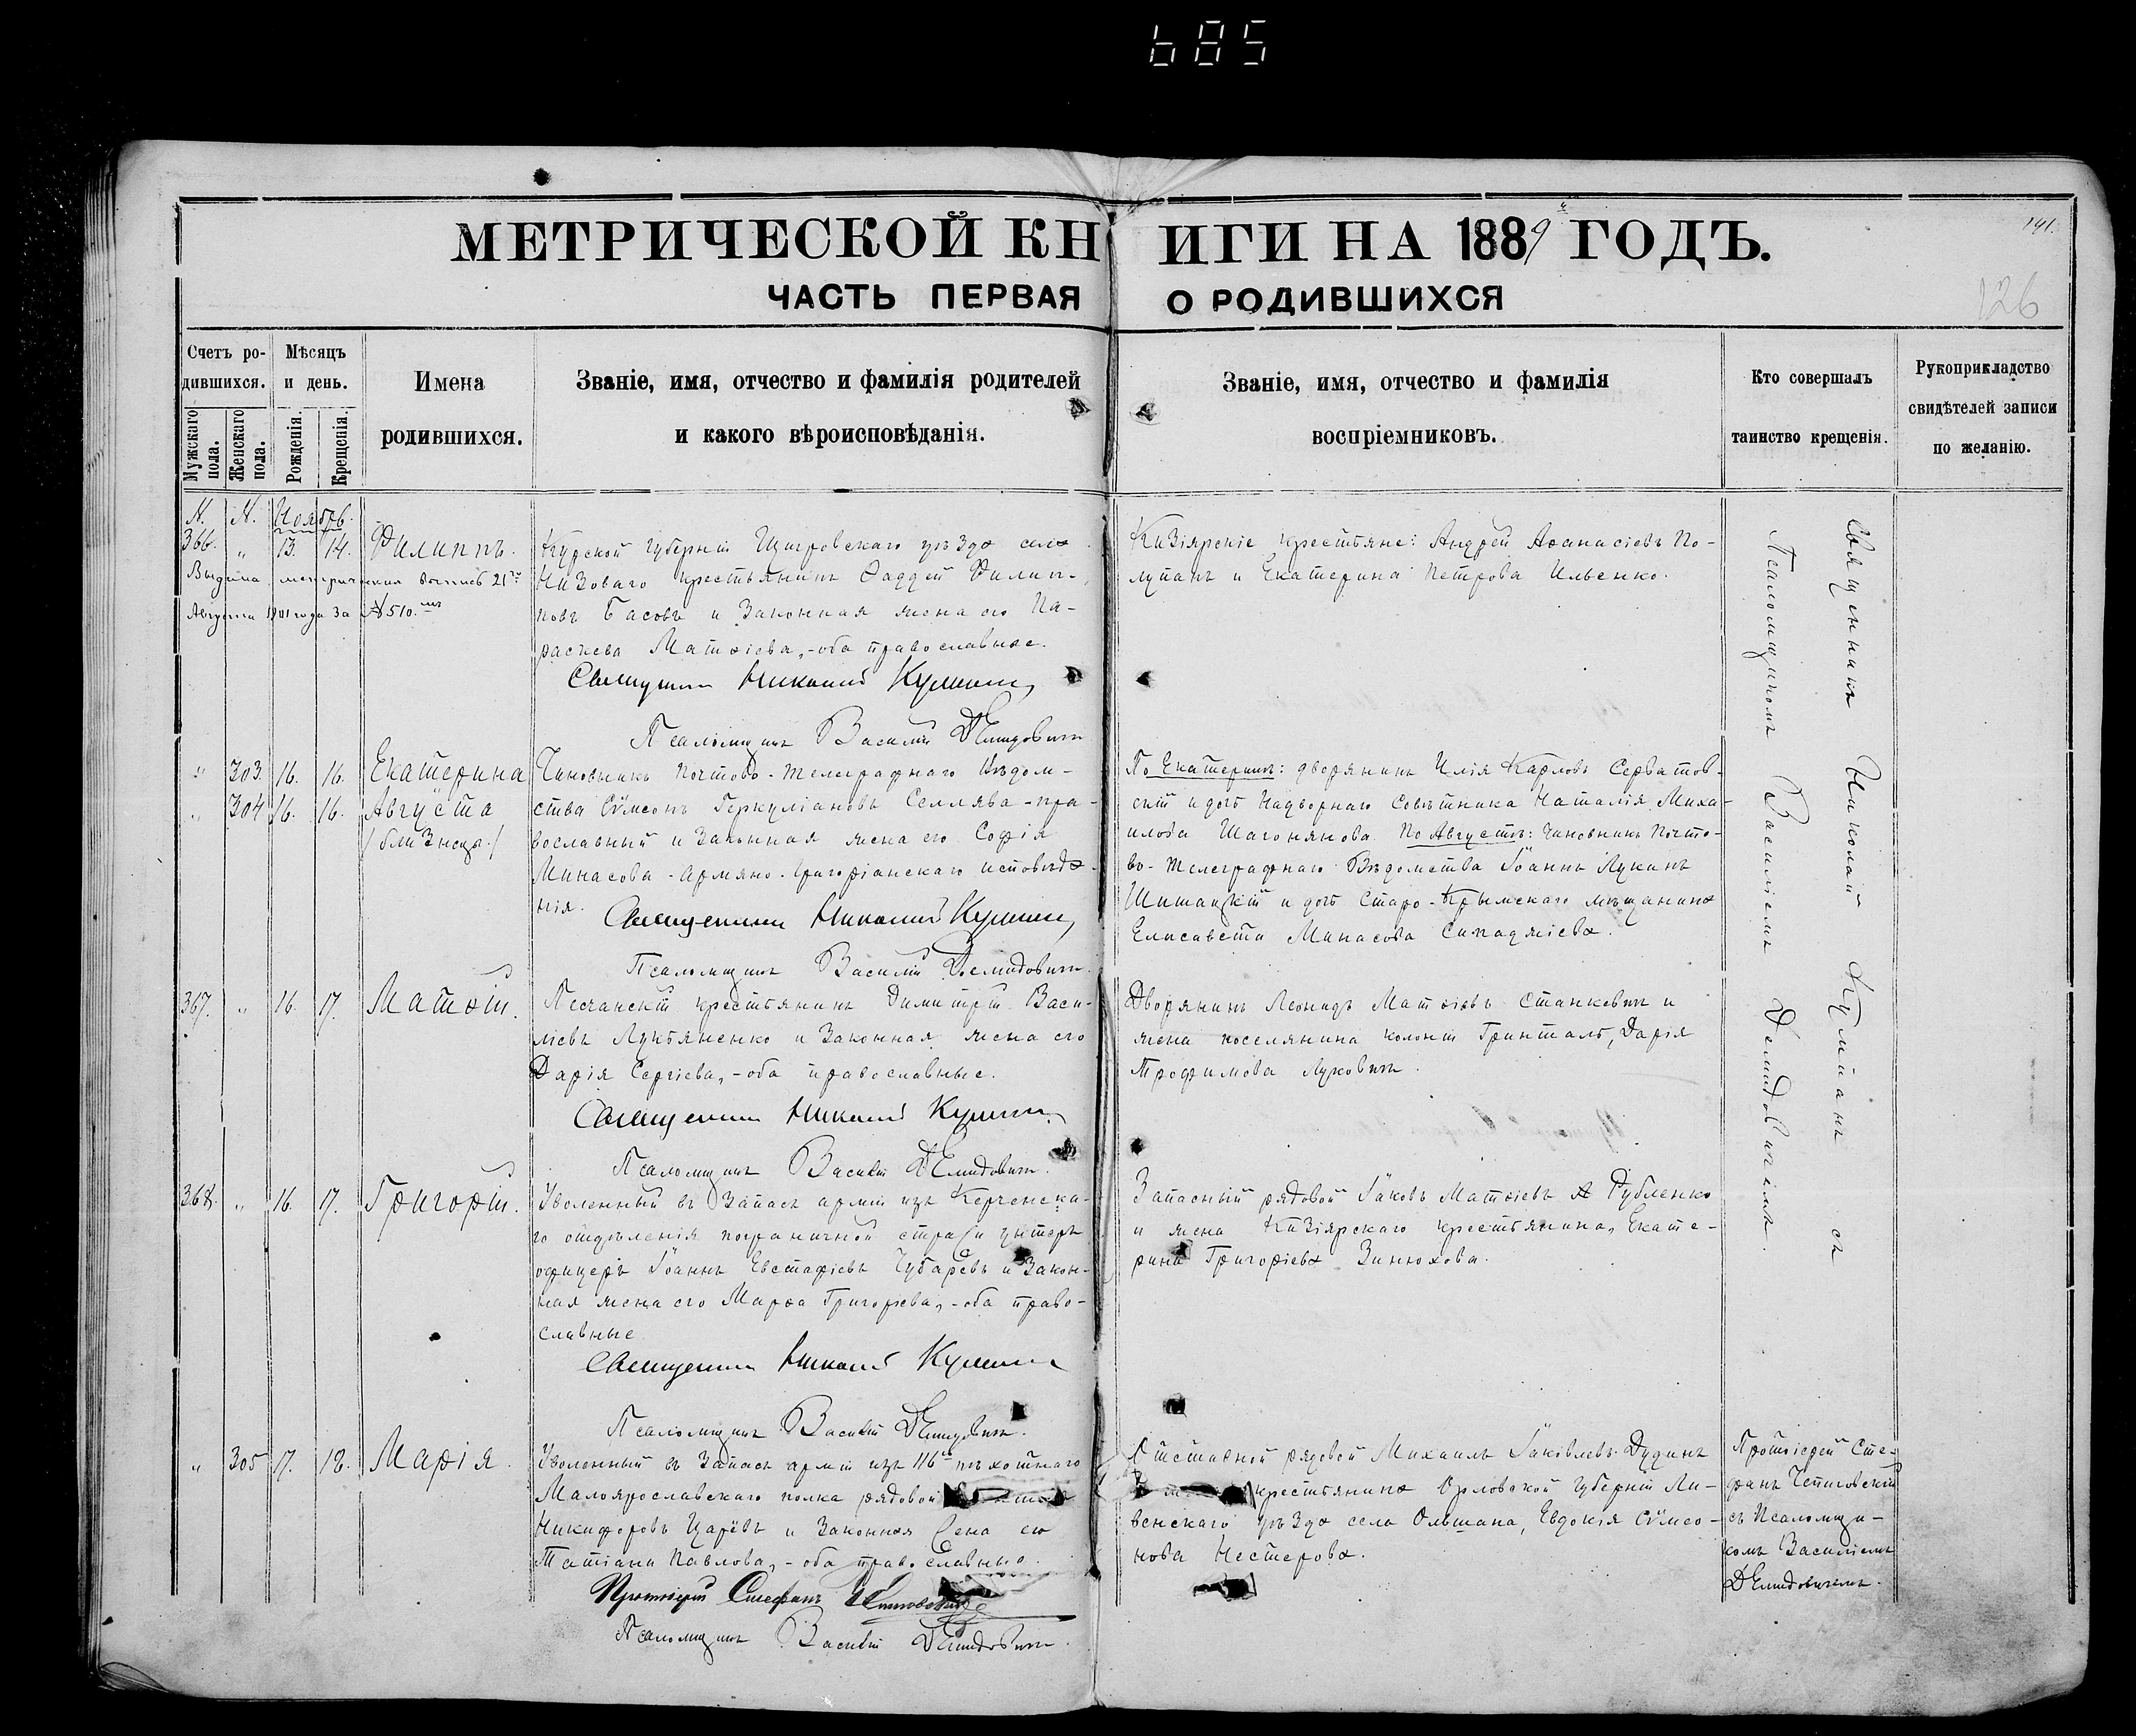 685
МЕТРИЧЕСКОЙ КНИГИ НА 1889 ГОДЪ.
141.
126
ЧАСТЬ ПЕРВАЯ О РОДИВШИХСЯ
Счетъ родившихся.
Мужскаго пола.
Женскаго пола.
Мѣсяцъ и день.
Рожденія.
Крещенія.
Имена
родившихся.
Званіе, имя, отчество и фамилія родителей
и какого вѣроисповѣданія.
Званіе, имя, отчество и фамилія
воспріемниковъ.
Кто совершалъ
таинство крещенія.
Рукоприкладство
свидѣтелей записи
по желанію.
Ноябрь.
366. " 13. 14. Филиппъ.
Выдана метрическая выпись 21го
Августа 1901 года за № 510.
Курской губерніи Щигровскаго уѣзда села
Низоваго крестьянинъ Ѳаддей Филип-
повъ Басовъ и законная жена его Па-
раскева Матѳіева, - оба православные.
Священникъ Николай
Псаломщикъ Василій Демидовичъ
Кизіярскіе крестьяне: Андрей Аѳанасіевъ По-
лупанъ и Екатерина Петрова Ильенко.
" 303. 16. 16. Екатерина
" 304. 16. 16. Августа
/близнецы/
Чиновникъ Почтово-телеграфнаго вѣдом-
ства Сѵмеонъ Геркуліановъ Селлява - пра-
вославный и законная жена его Софія
Минасова - Армяно-Григоріанскаго исповѣда-
нія.
Священникъ Николай
Псаломщикъ Василій Демидовичъ.
По Екатеринѣ: дворянинъ Илія Карловъ Серватов-
скій и дочь Надворнаго Совѣтника Наталія Миха-
илова Шагонянова. По Августѣ: чиновникъ Почто-
во-телеграфнаго Вѣдомства Іоаннъ Лукинъ
Шишацкій и дочь Старо-Крымскаго мѣщанина
Елисавета Минасова
367. " 16. 17. Матѳій.
Песчанскій крестьянинъ Димитрій Васи-
ліевъ Лукьяненко и законная жена его
Дарія Сергіева, - оба православные.
Священникъ Николай
Псаломщикъ Василій Демидовичъ.
Дворянинъ Леонидъ Матѳіевъ Станкевичъ и
жена поселянина колоніи Гринталь, Дарія
Трофимова Луковичъ.
368. " 16. 17. Григорій.
Уволенный въ запасъ арміи изъ Керченска-
го отдѣленія пограничной стражи унтеръ
офицеръ Іоаннъ Евстафіевъ Чубаревъ и закон-
ная жена его Марѳа Григоріева, - оба право-
славные
Священникъ Николай
Псаломщикъ Василій Демидовичъ.
Запасный рядовой Іаковъ Матѳіевъ Рубленко
и жена Кизіярскаго крестьянина, Екате-
рина Григоріева Зинюхова.
Священникъ Николай съ
Псаломщикомъ Василіемъ Демидовичемъ.
" 305 17. 18. Марія.
Уволенный въ запасъ арміи изъ 116го пѣхотнаго
Малоярославскаго полка рядовой
Никифоровъ Царёвъ и законная жена его
Татіана Павлова, - оба православные.
Протоіерей Стефанъ
Псаломщикъ Василій Демидовичъ.
Отставной рядовой Михаилъ Іаковлевъ Дудинъ
крестьянина Орловской губерніи Ли-
венскаго уѣзда села Ольшана, Евдокія Сѵмео-
нова Нестерова.
Протоіерей Сте-
фанъ
съ Псаломщи-
комъ Василіемъ
Демидовичемъ.